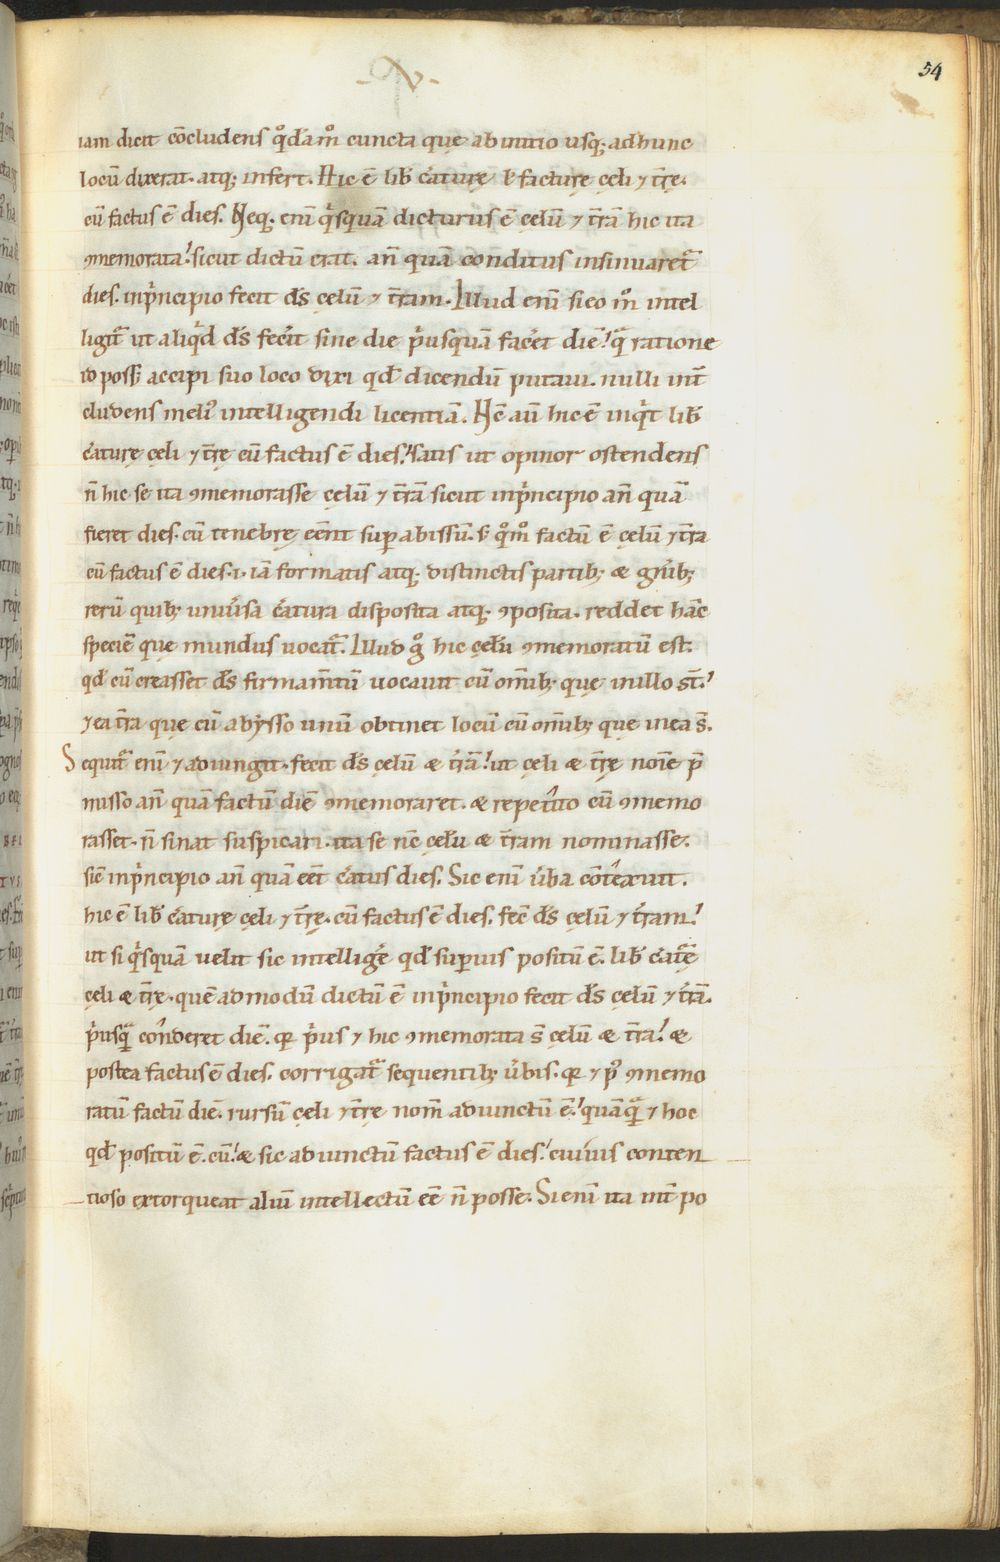 -V-
54
iam dicit c̄cludens q̊dam̊ cuncta que ab initio usq; ad hunc
locū dixerat. atq; infert. Hic ē lib̄ c̄aturę ł facturę cęli ⁊ t̄rę.
cū factus ē dies. Neq; eni q'squā dicturus ē cęlū ⁊ t̄rā hic ita
ꝯmemorata! sicut dictū erat. an̄ quā conditus insinuaret̄
dies. in p'ncipio fecit d̄s cęlū ⁊ t̄ram. Illud eni sico m̊ intel
ligit̄ ut aliq'd d̄s fec̄it sine die p'usquā fac̄et diē! q̄ ratione
id poss; accipi suo loco dixi qđ dicendū putaui. nulli int̄
cludens meli' intelligendi licentiā. Nc̄ aū hic ē inq't lib̄
c̄aturę cęli ⁊ t̄rę cū factus ē dies! satis ut opinor ostendens
n̄ hic se ita ꝯmemorasse cęlū ⁊ t̄rā sicut in p'ncipio an̄ quā
fieret dies. cū tenebrę eēnt sup abissū. ł q̊m̊ factū ē cęlū ⁊ t̄ra
cū factus ē dies .i. iā formatis atq; distinctis partib; & gn̄ib;
rerū quib; uniūsa c̄atura disposita atq; ꝯposita. reddet hāc
speciē que mundus uocat̄. Illud g̊ hic cęlū ꝯmemoratū est.
qđ cū creasset d̄s firmam̄tū uocauit cū om̄ib; que in illo st̄!
⁊ ea t̄ra que cū abysso unū obtinet locū cū om̄ib; que in ea s̄.
Sequit̄ eni ⁊ adiungit. fecit d̄s cęlū & t̄rā! ut cęli & t̄rę noīe p̄
misso an̄ quā factū diē ꝯmemoraret. & repetito cū ꝯmemo
rasset. n̄ sinat suspicari. ita se nc̄ cęlū & t̄ram nominasse.
sic̄ in p'ncipio an̄ quā eēt c̄atus dies. Sic eni ūba cōtexuit.
hic ē lib̄ c̄aturę cęli ⁊ t̄rę. cū factus ē dies. fec̄ d̄s cęlū ⁊ t̄ram!
ut si q'squā uelit sic intelliḡe qđ superius positū ē. lib̄ c̄at̄ę
cęli & t̄rę. quē ad modū dictū ē in p'ncipio fecit d̄s cęlū ⁊ t̄rā.
p'usq̄ cōderet diē. q̄ p'us ⁊ hic ꝯmemorata s̄ cęlū & t̄ra! &
postea factus ē dies. corrigat̄ sequentib; ūbis. q̄ ⁊ p' ꝯmemo
ratū factū diē. rursū cęli ⁊ t̄rę nom̄ adiunctū ē! quāq̄ ⁊ hoc
qđ positū ē. cū! & sic adiunctū factus ē dies! cuiuis conten
tioso extorqueat aliū intellectū eē n̄ posse. Si eni ita int̄po